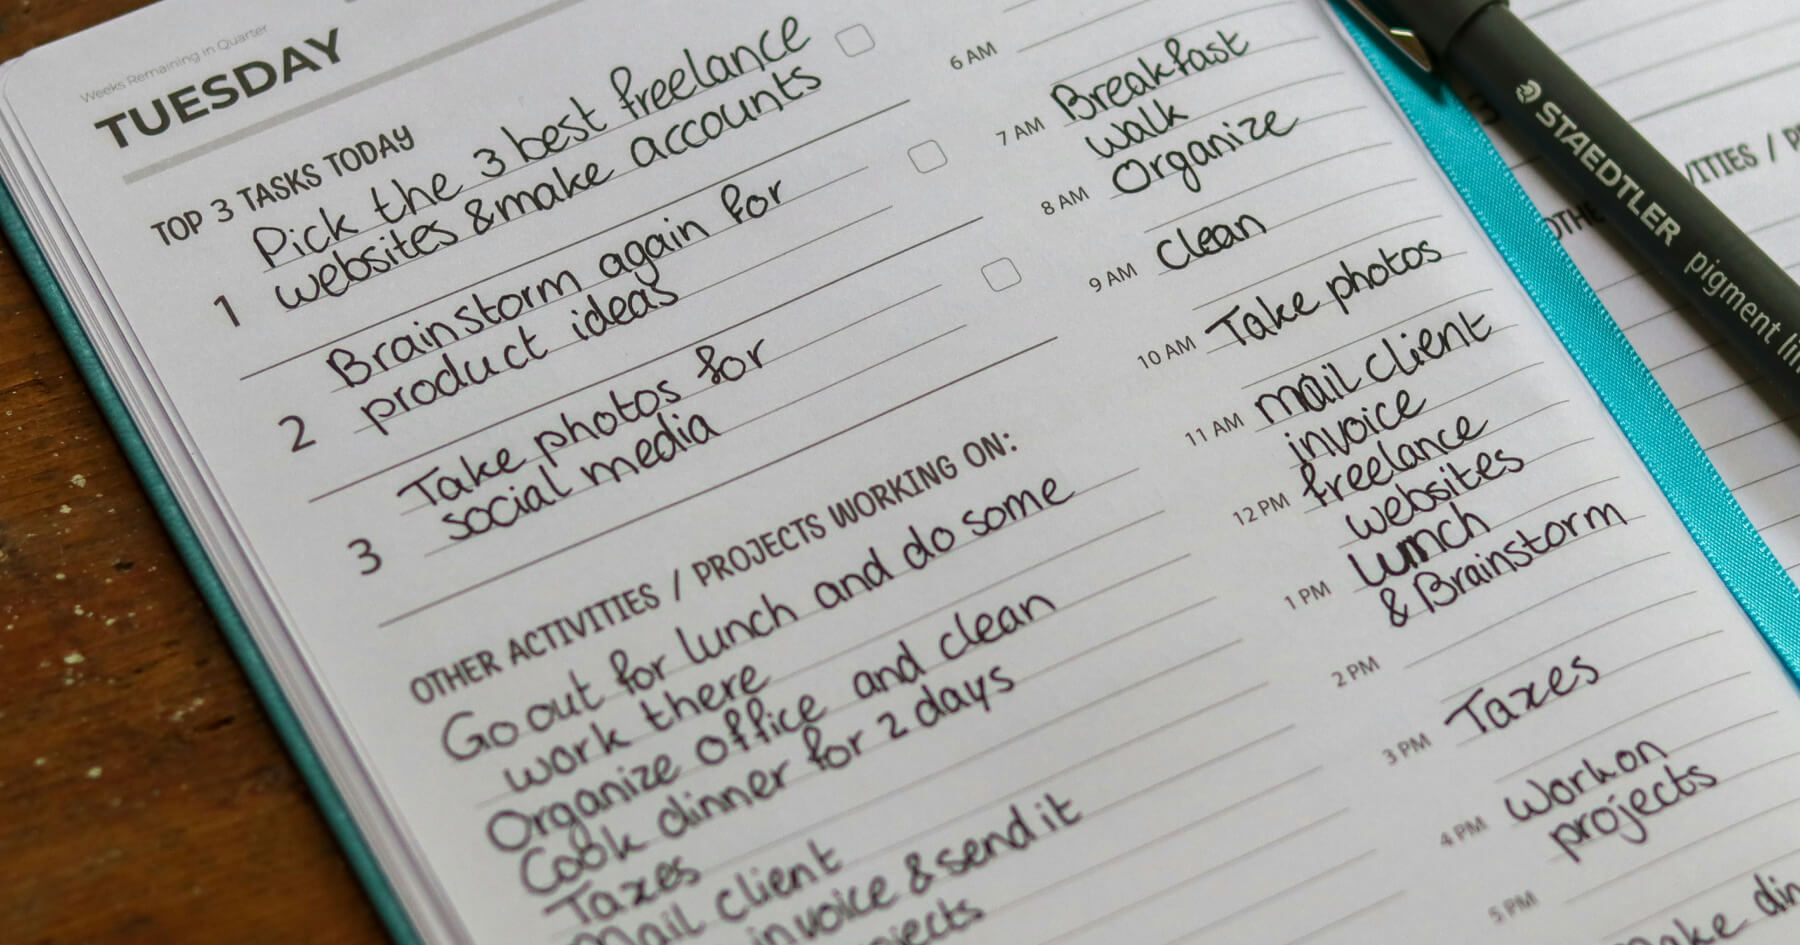 Weeks Remaining in Quarter
TUESDAY
TOP 3 TASKS TODAY
Pick the 3 best freelance
1 websites & make accounts
Brainstorm again for
2 product ideas
Take photos for
3 social media
OTHER ACTIVITIES / PROJECTS WORKING ON:
Go out for lunch and do some
work there
Organize office and clean
Cook dinner for 2 days
Taxes
Mail client
invoice & send it
6 AM
7 AM Breakfast
walk
8 AM Organize
9 AM Clean
10 AM Take photos
11 AM mail client
invoice
12 PM freelance
websites
1 PM lunch
& Brainstorm
2 PM
3 PM Taxes
4 PM Work on
projects
5 PM
STAEDTLER pigment